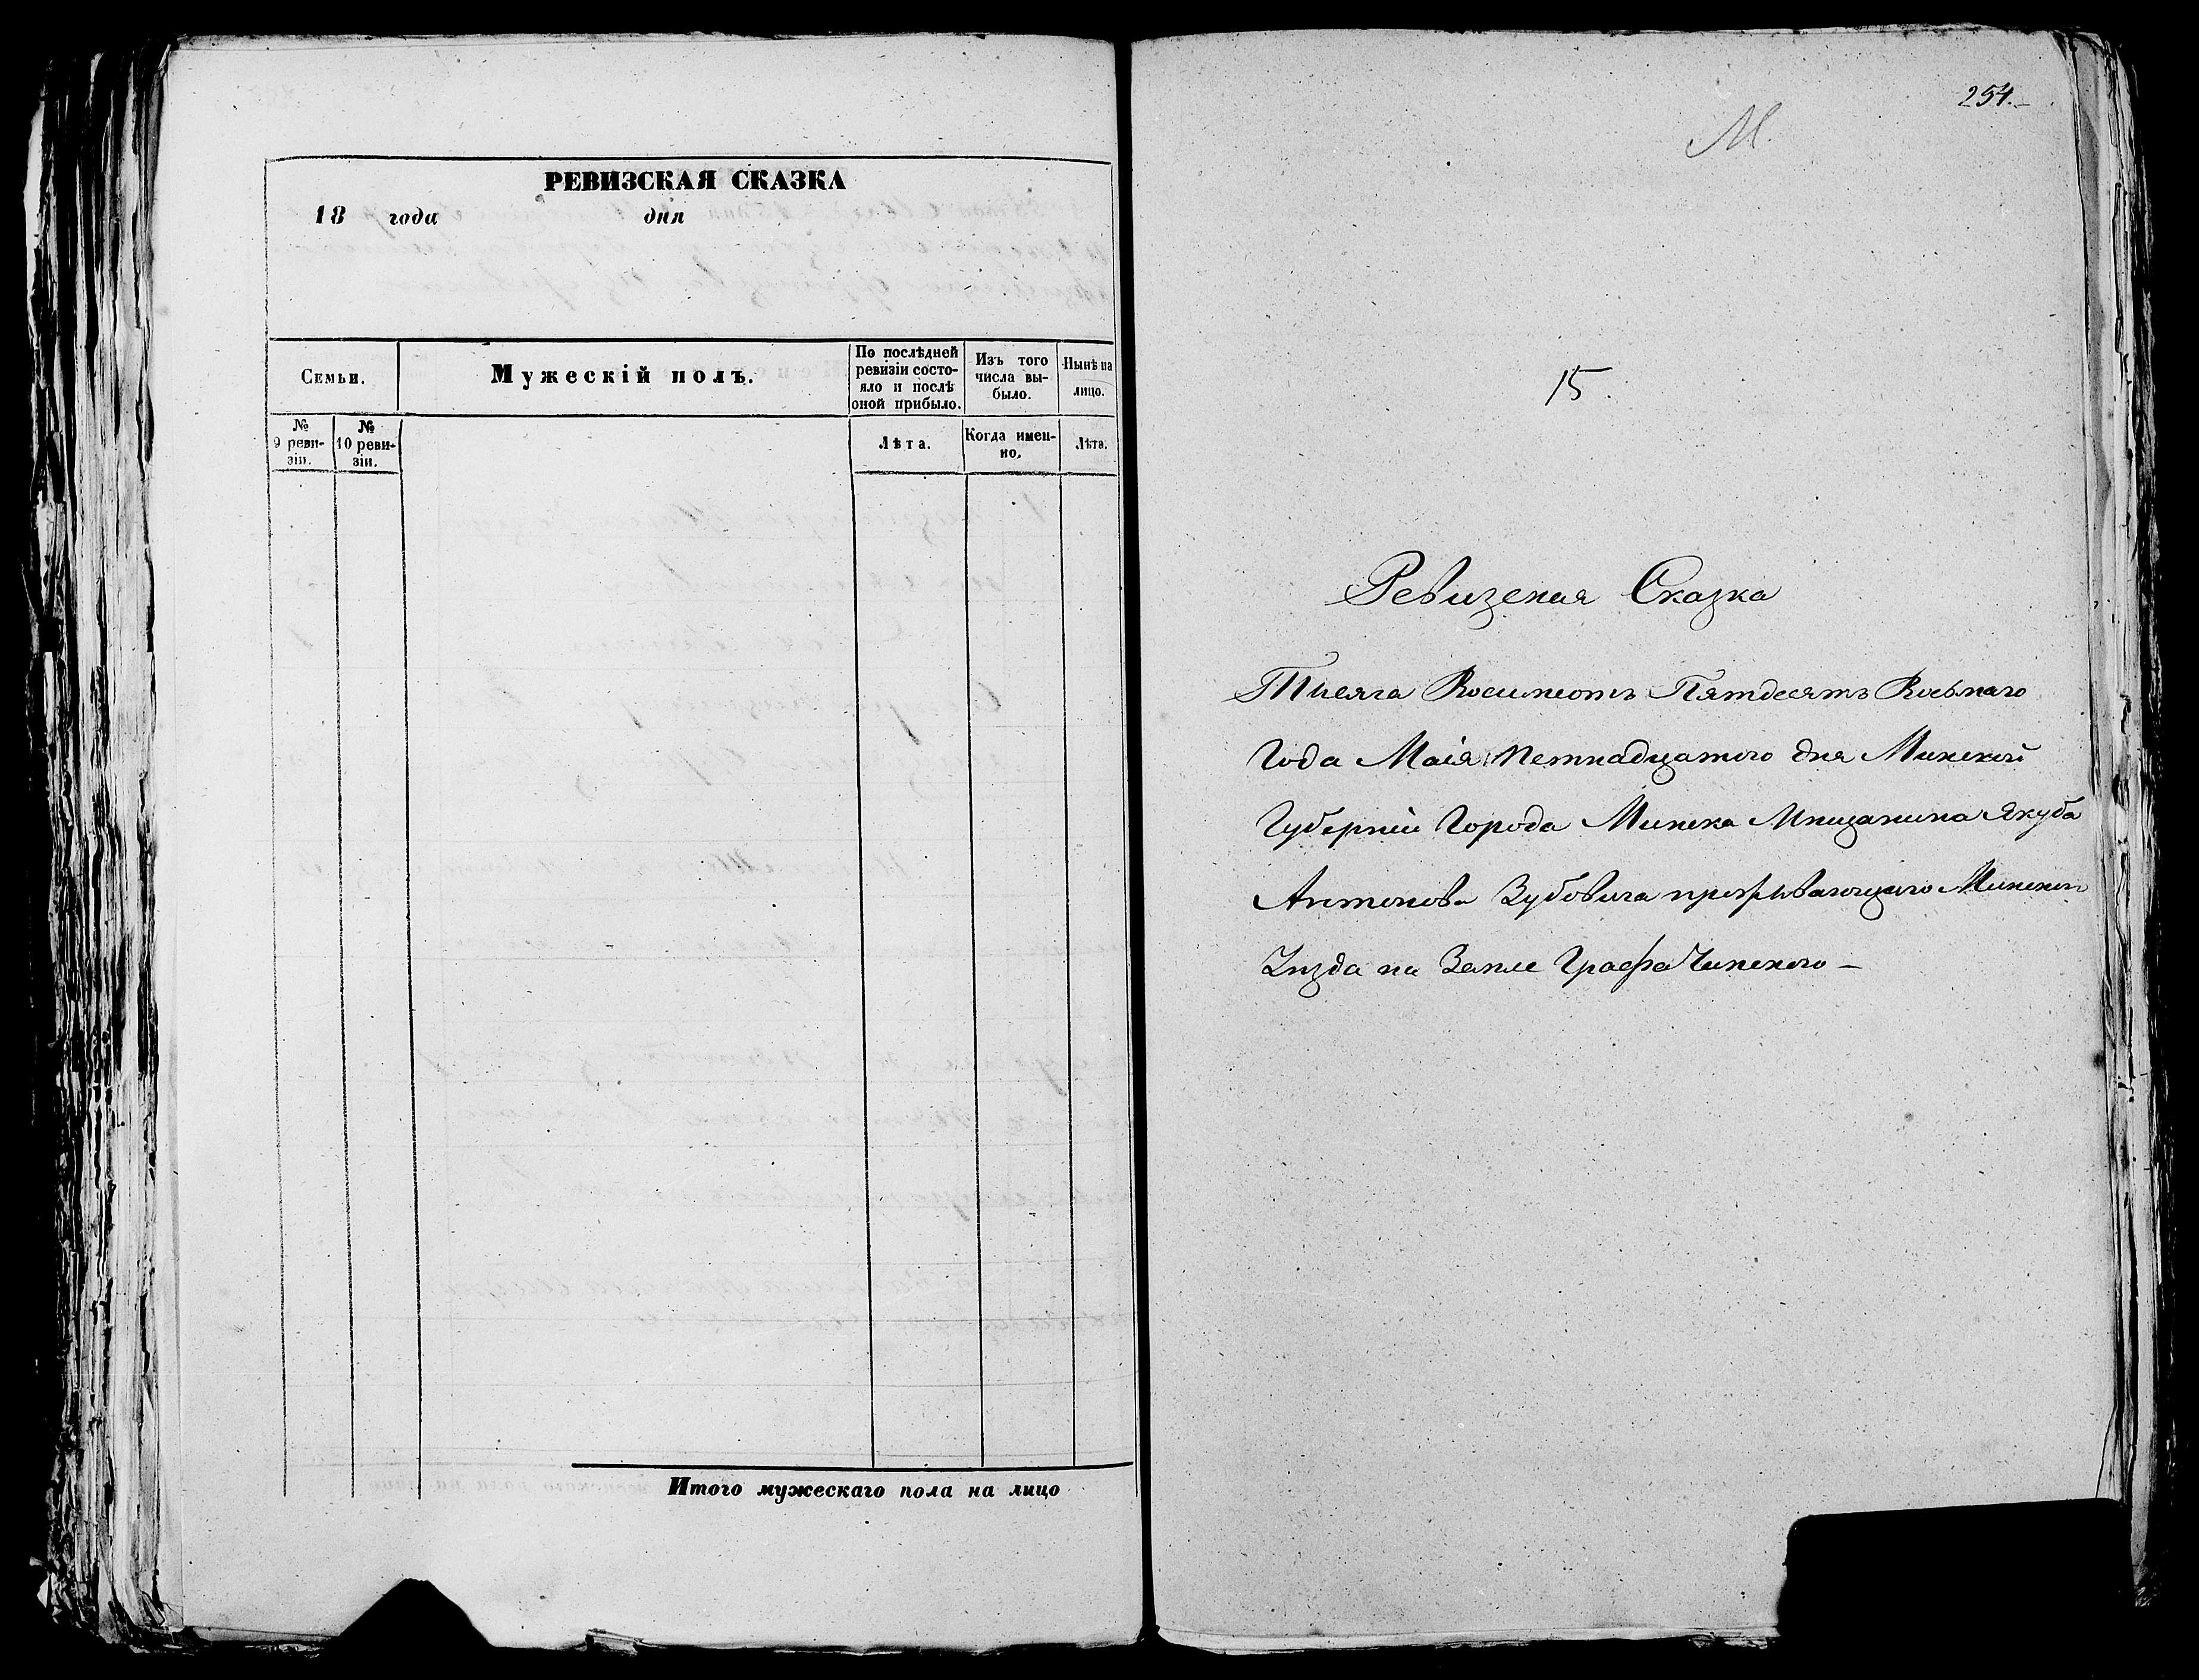 РЕВИЗСКАЯ СКАЗКА
18 года дня
Семьи.
Мужескій полъ.
По послѣдней
ревизіи состо-
яло и послѣ
оной прибыло.
Изъ того
числа вы-
было.
Нынѣ на
лицо.
№
9 реви-
зіи.
№
10 реви-
зіи.
Лѣта.
Когда имен-
но.
Лѣта.
Итого мужескаго пола на лицо
254.
М.
15.
Ревизская Сказка
Тысяча Восимсотъ Пятдесятъ Восьмаго
Года Маія Петнадцатого дня Минской
Губерніи Города Минска Мещанина Якуба
Антонова Зубовича Минском
Уезда на Земле Графа Чапского —